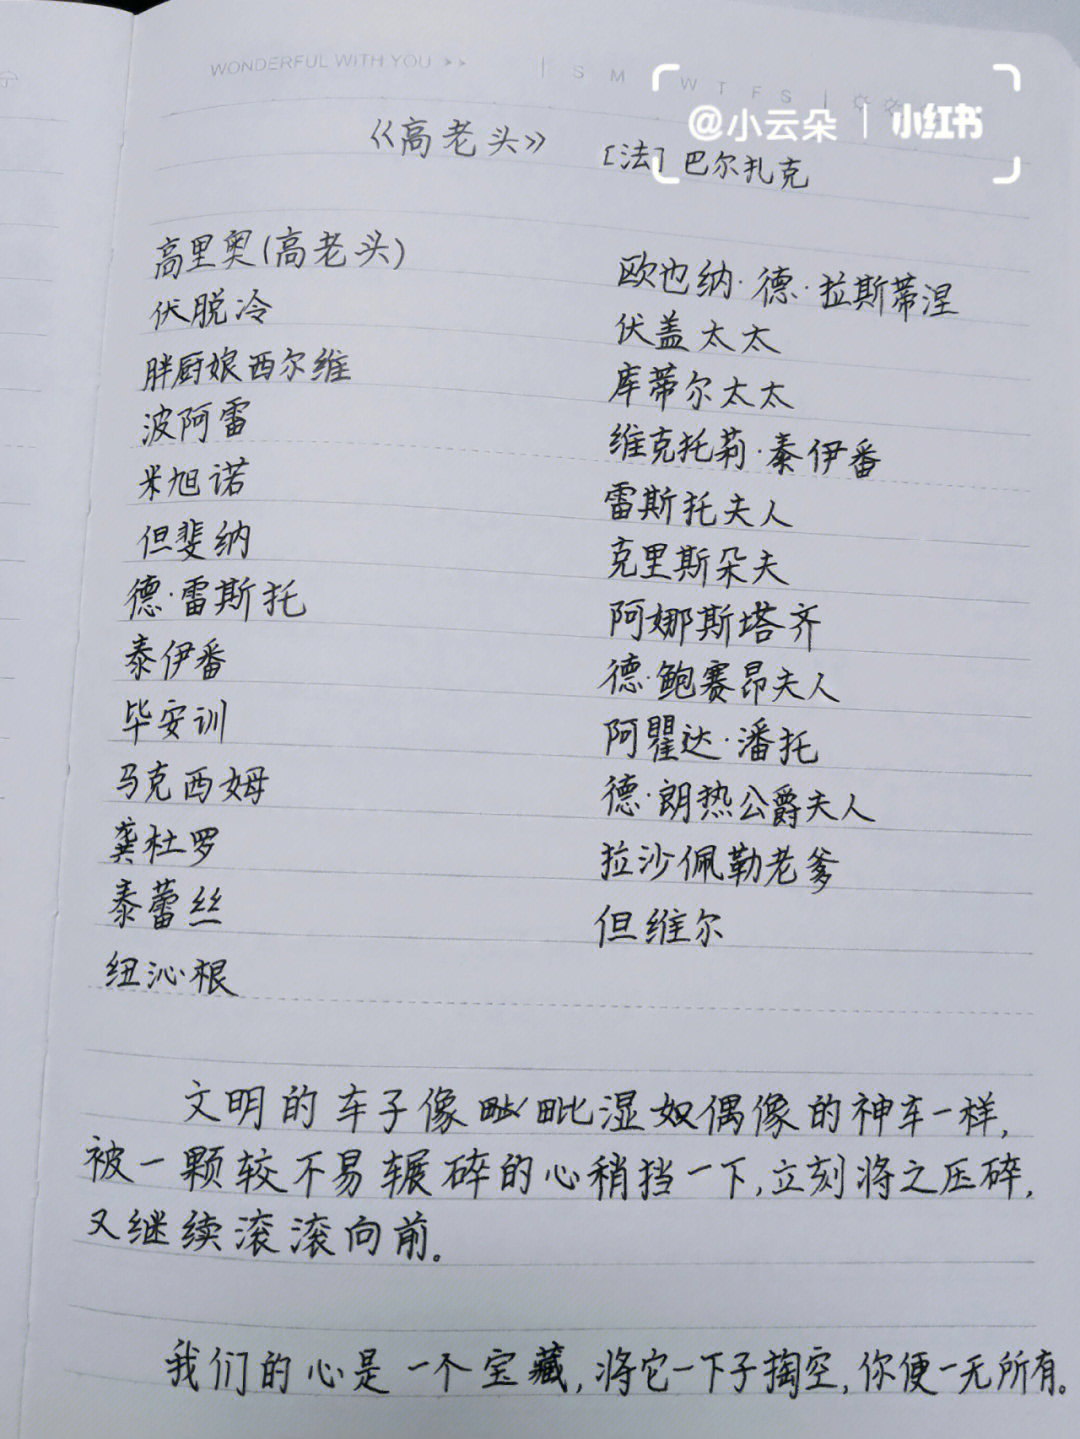 WONDERFUL WITH YOU
S M W T F S
@小云朵 | 小红书
《高老头》 [法] 巴尔扎克
高里奥(高老头)
伏脱冷
胖厨娘西尔维
波阿雷
米旭诺
但斐纳
德·雷斯托
泰伊番
毕安训
马克西姆
龚杜罗
泰蕾丝
纽沁根
欧也纳·德·拉斯蒂涅
伏盖太太
库蒂尔太太
维克托莉·泰伊番
雷斯托夫人
克里斯朵夫
阿娜斯塔齐
德·鲍赛昂夫人
阿瞿达·潘托
德·朗热公爵夫人
拉沙佩勒老爹
但维尔
文明的车子像毗湿奴偶像的神车一样,
被一颗较不易辗碎的心稍挡一下,立刻将之压碎,
又继续滚滚向前。
我们的心是一个宝藏,将它一下子掏空,你便一无所有。